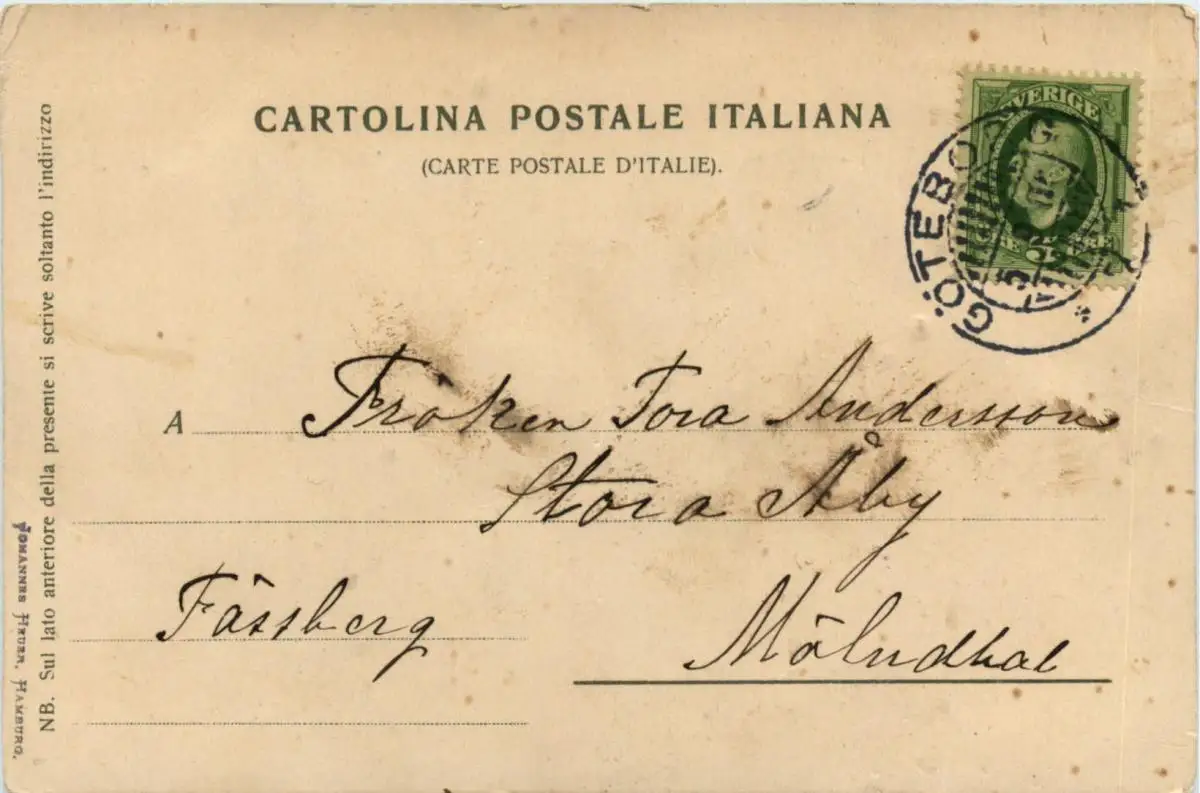 CARTOLINA POSTALE ITALIANA
(CARTE POSTALE D'ITALIE).
SVERIGE
5
GÖTEBORG
A Fröken Tora Andersson
Stora Åby
Fässberg
Mölndhal
NB. Sul lato anteriore della presente si scrive soltanto l'indirizzo
JOHANNES HEUER, HAMBURG.